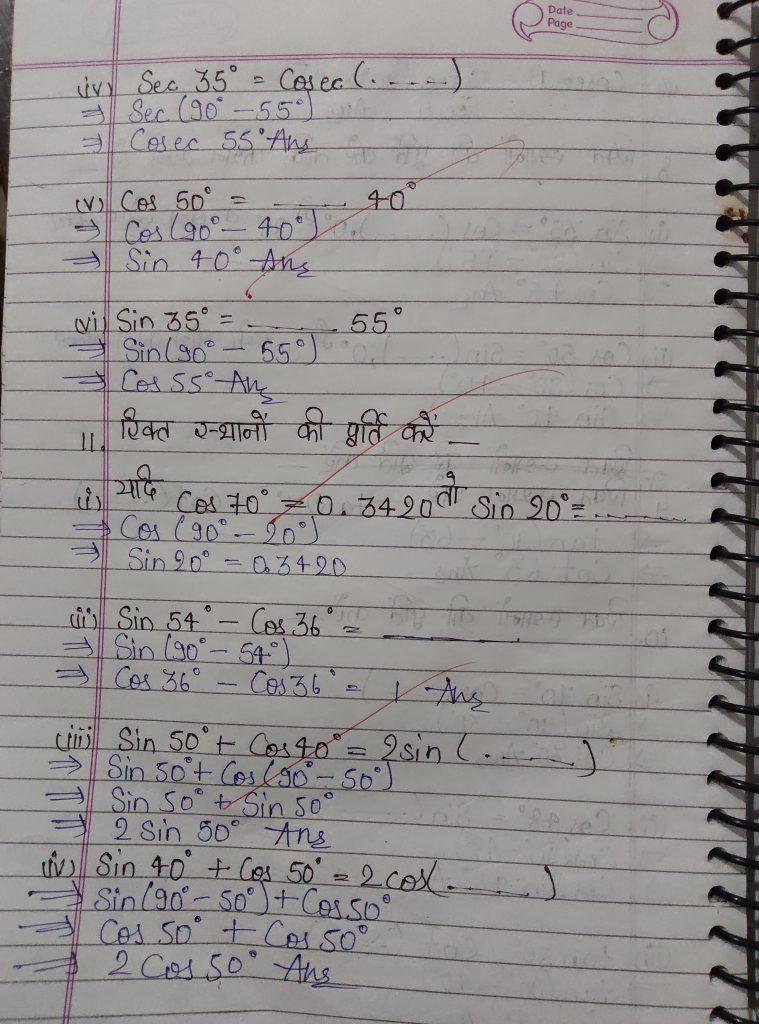 Date
Page
(iv) Sec 35° = Cosec (.....)
⇒ Sec (90° – 55°)
⇒ Cosec 55° Ans
(v) Cos 50° = ...... 40°
⇒ Cos (90° – 40°)
⇒ Sin 40° Ans
(vi) Sin 35° = ...... 55°
⇒ Sin (90° – 55°)
⇒ Cos 55° Ans
11. रिक्त स्थानों की पूर्ति करें —
(i) यदि Cos 70° = 0.3420 तो Sin 20° = ......
⇒ Cos (90° – 20°)
⇒ Sin 20° = 0.3420
(ii) Sin 54° – Cos 36° = ______
⇒ Sin (90° – 54°)
⇒ Cos 36° – Cos 36° = 1 Ans
(iii) Sin 50° + Cos 40° = 2 sin (......)
⇒ Sin 50° + Cos (90° – 50°)
⇒ Sin 50° + Sin 50°
⇒ 2 Sin 50° Ans
(iv) Sin 40° + Cos 50° = 2 cos (......)
⇒ Sin (90° – 50°) + Cos 50°
⇒ Cos 50° + Cos 50°
⇒ 2 Cos 50° Ans